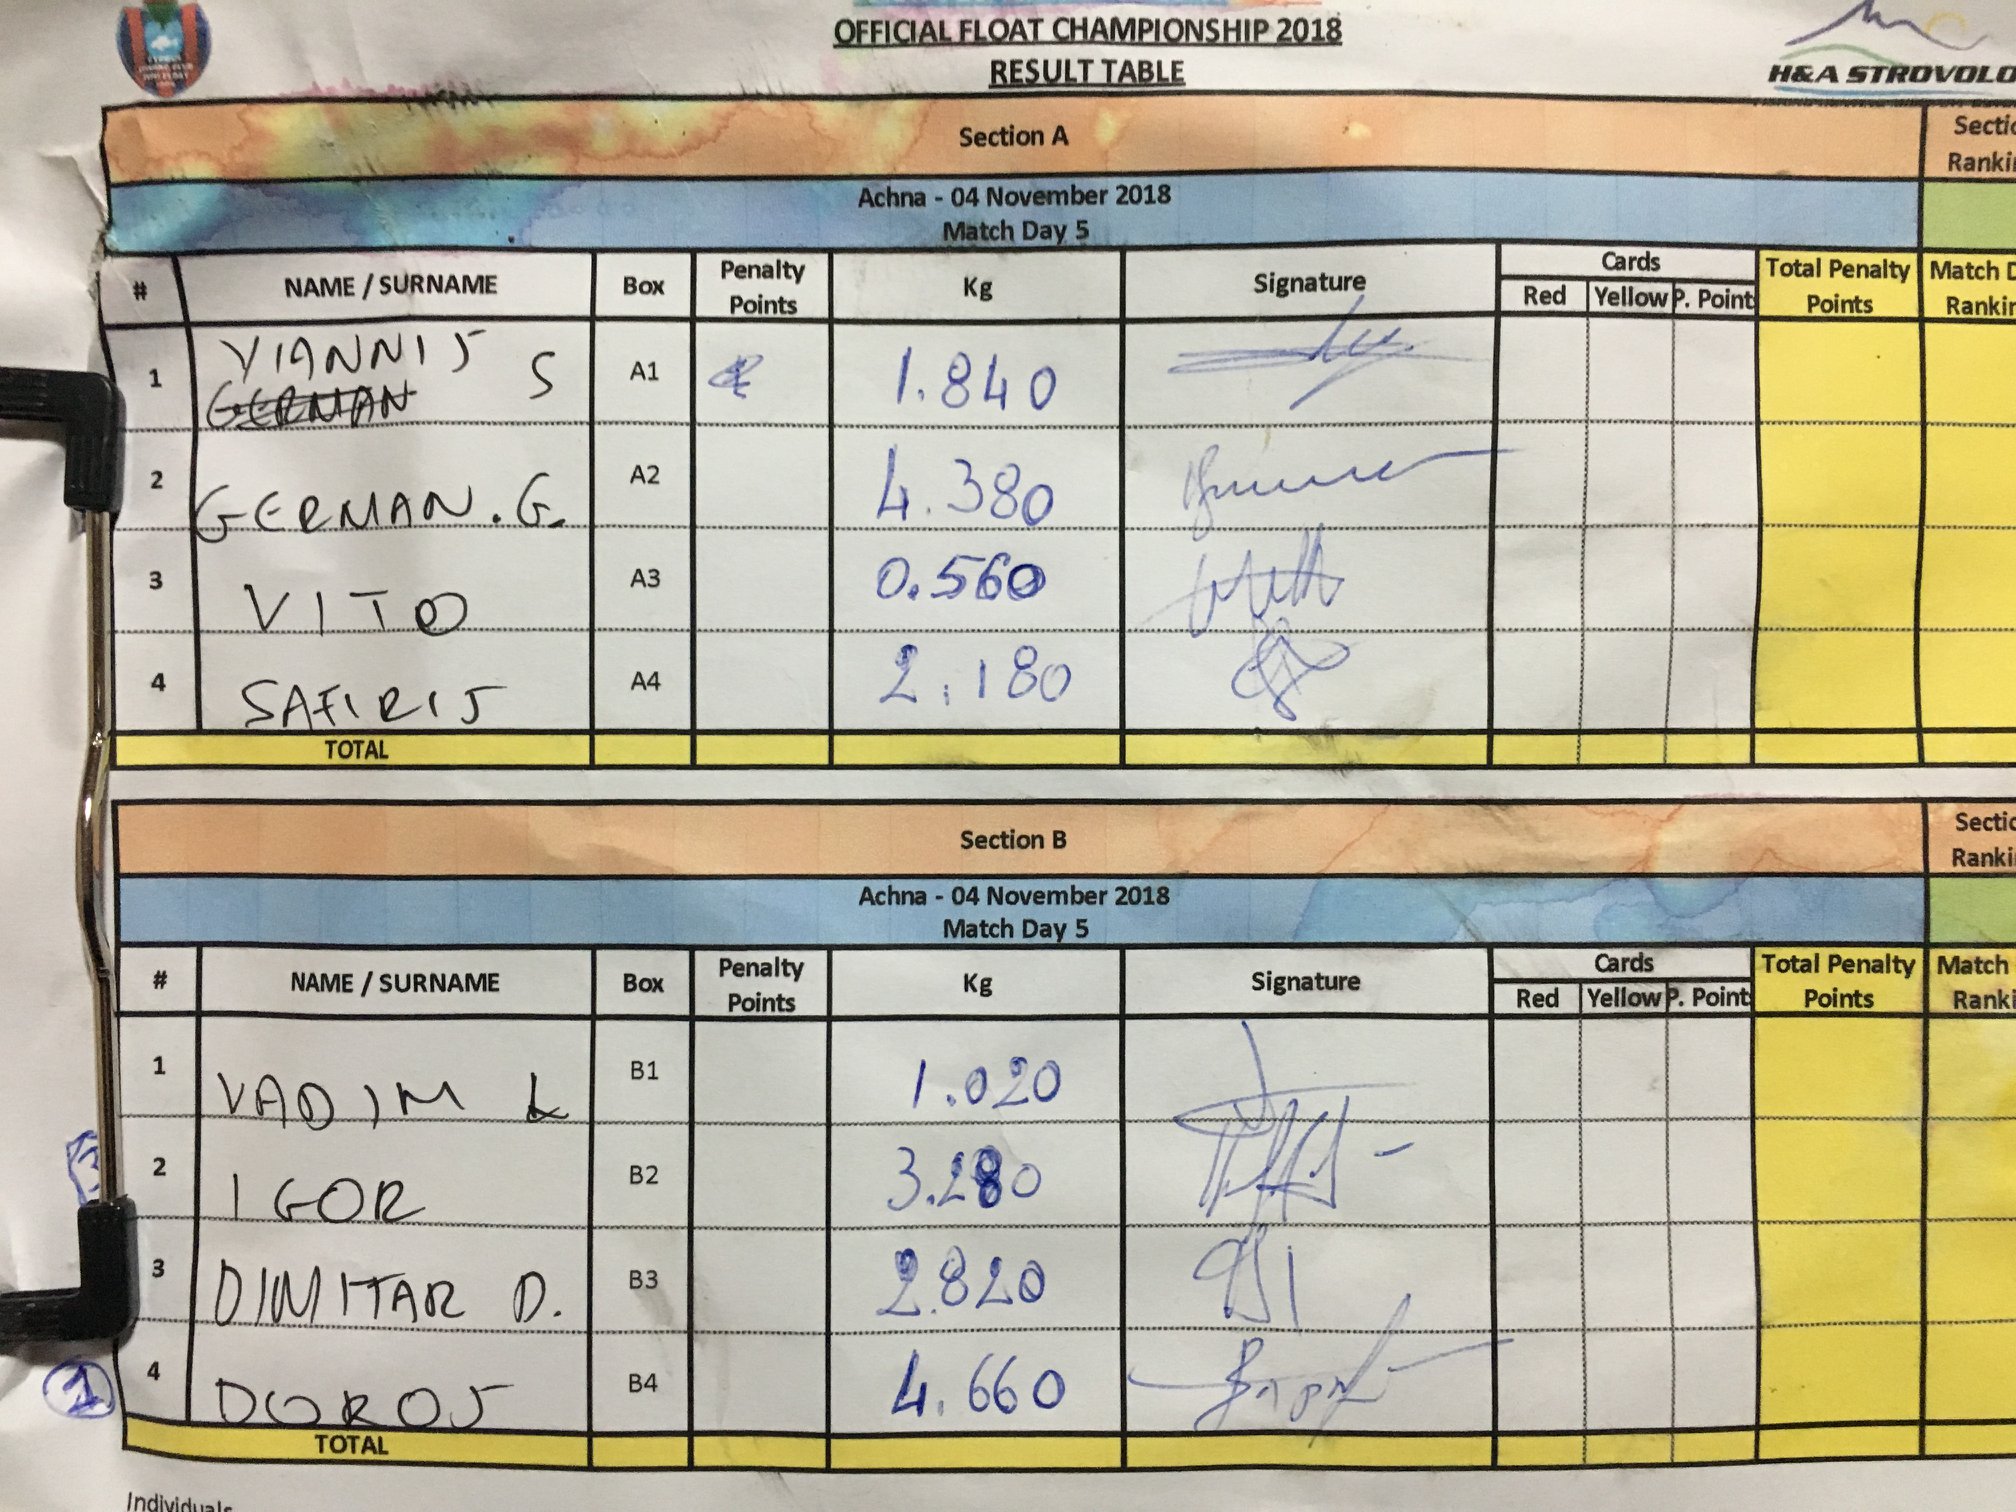 OFFICIAL FLOAT CHAMPIONSHIP 2018
RESULT TABLE
H&A STROVOLO
Section A
Sectio
Rankin
Achna - 04 November 2018
Match Day 5
# NAME / SURNAME Box Penalty Points Kg Signature Cards Red Yellow P. Point Total Penalty Points Match D Rankin
1 YIANNIS S A1 1.840
GERMAN
2 GERMAN. G. A2 4.380
3 VITO A3 0.560
4 SAFIRIS A4 2.180
TOTAL
Section B
Sectio
Rankin
Achna - 04 November 2018
Match Day 5
# NAME / SURNAME Box Penalty Points Kg Signature Cards Red Yellow P. Point Total Penalty Points Match Ranki
1 VADIM L B1 1.020
2 IGOR B2 3.280
3 DIMITAR D. B3 2.820
1 4 DOROS B4 4.660
TOTAL
Individuals